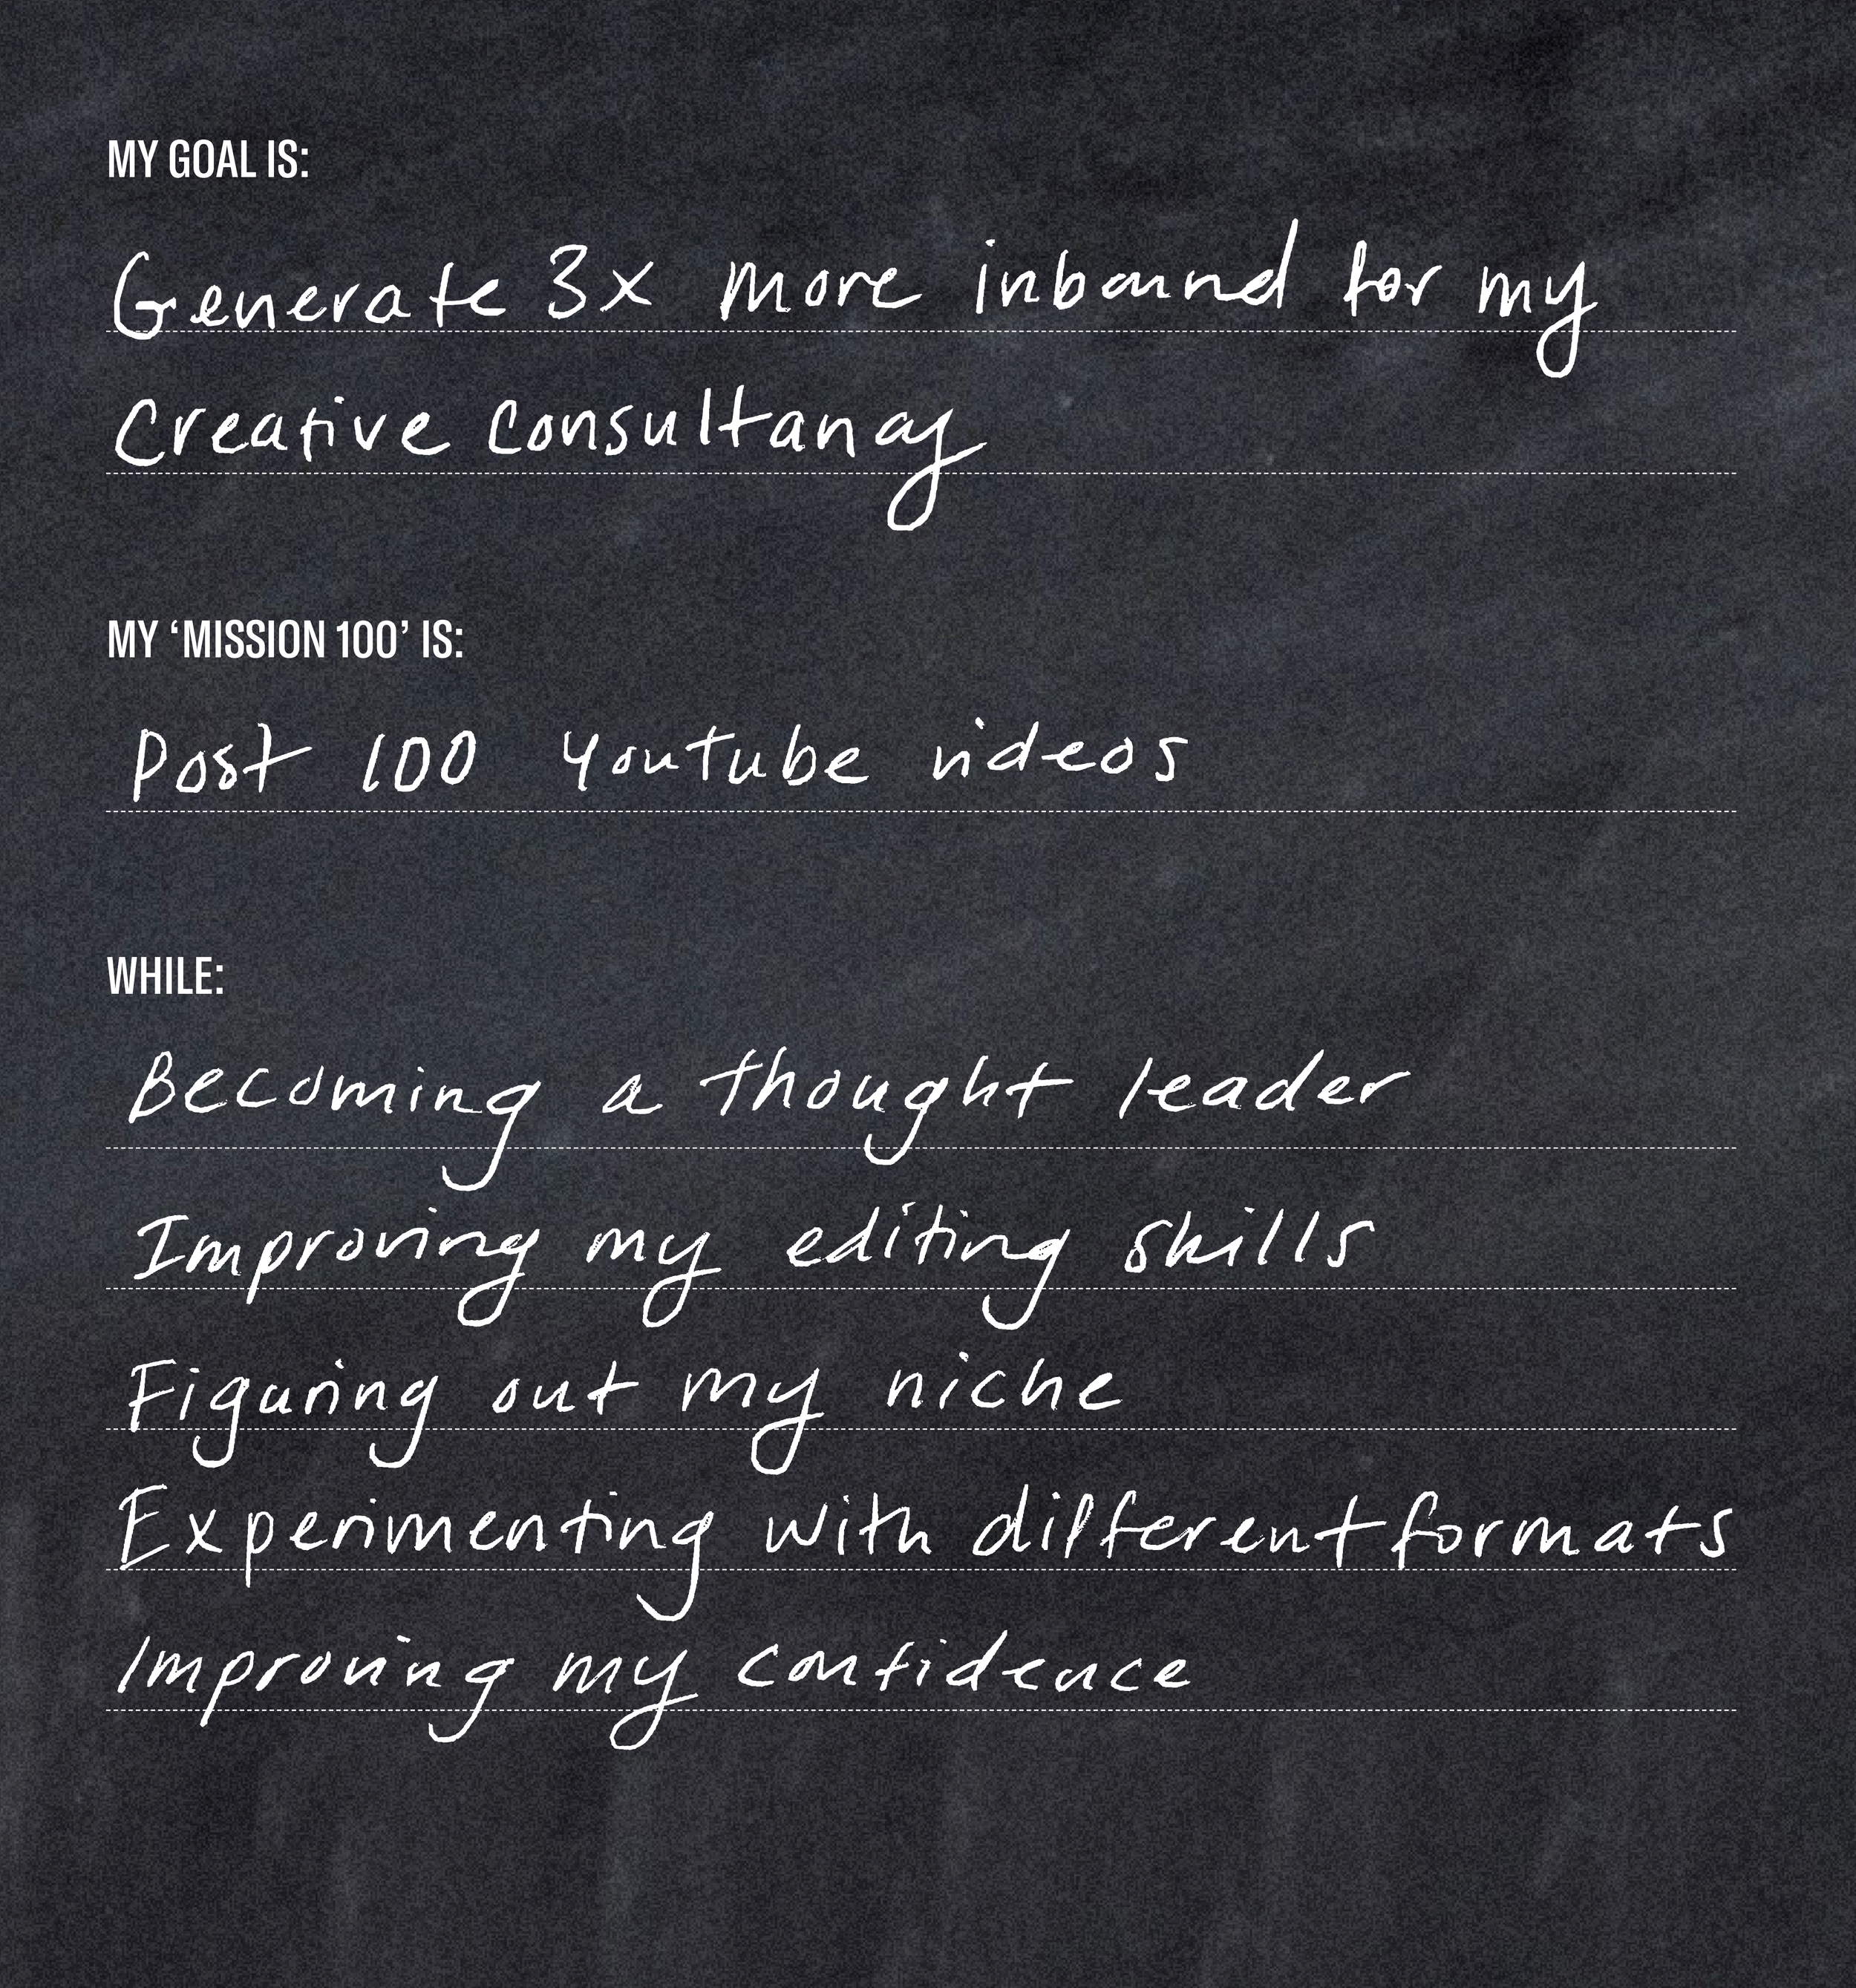 MY GOAL IS:
Generate 3x more inbound for my
Creative Consultancy
MY ‘MISSION 100’ IS:
Post 100 Youtube videos
WHILE:
Becoming a thought leader
Improving my editing skills
Figuring out my niche
Experimenting with different formats
Improving my confidence